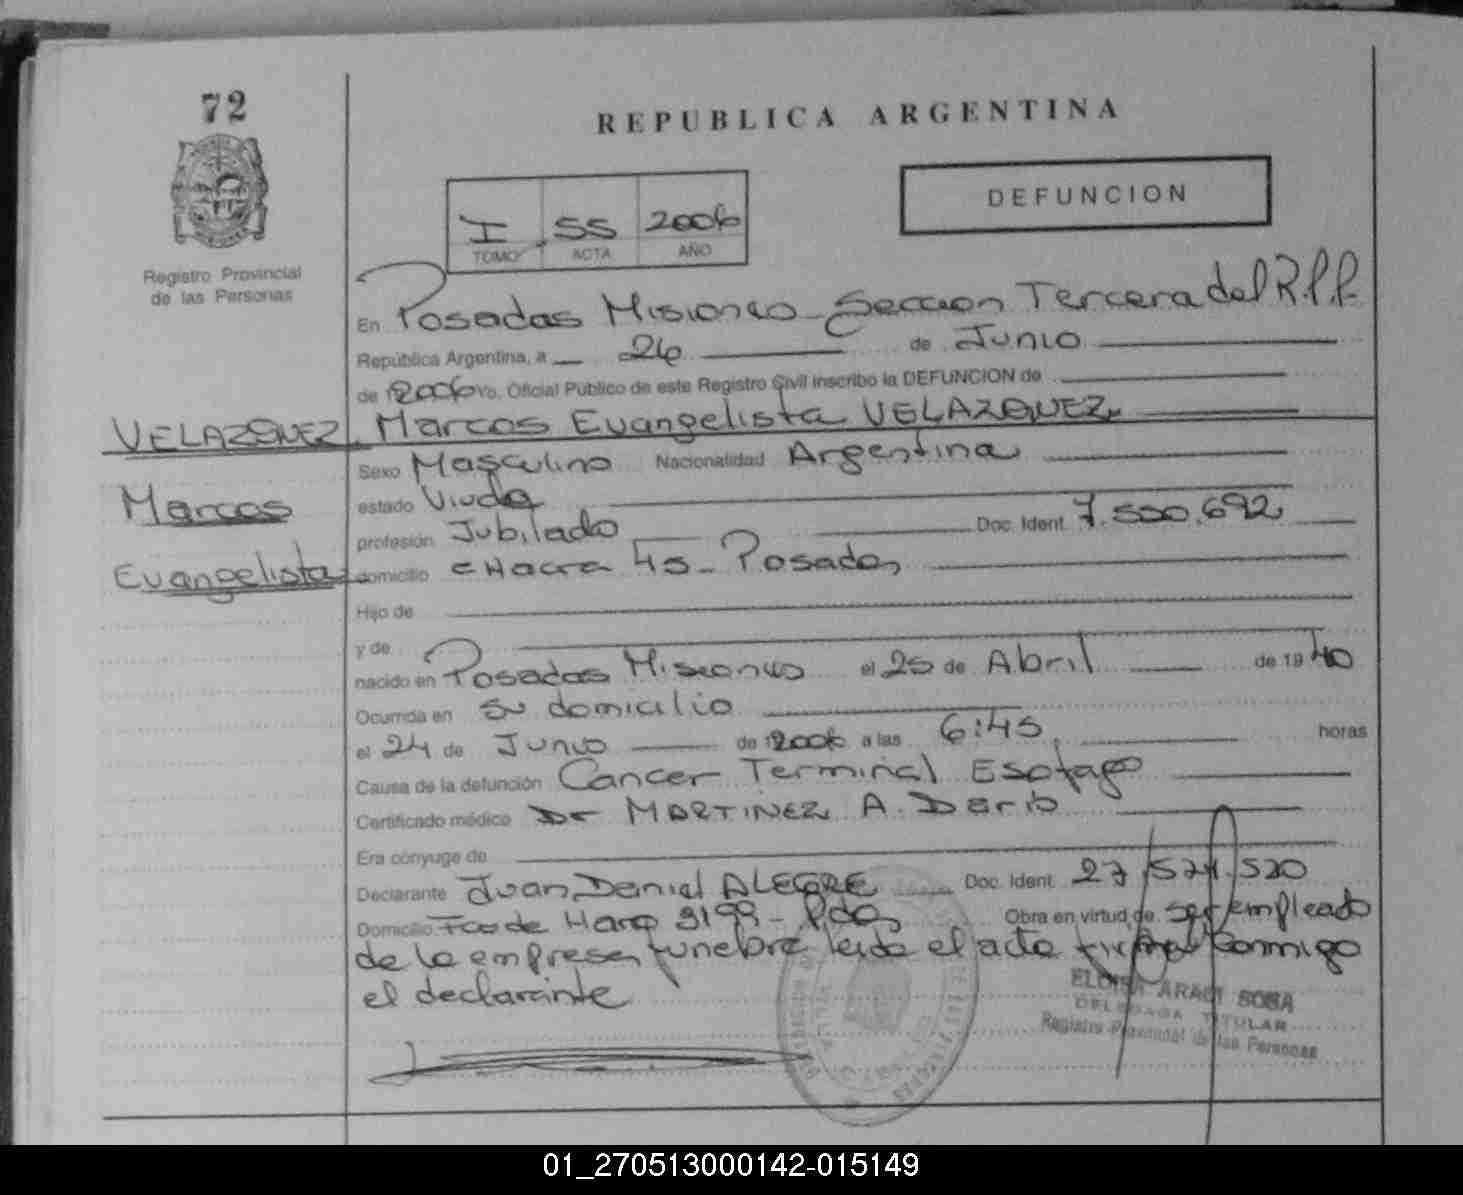 72
REPUBLICA ARGENTINA
DEFUNCION
I 55 2006
TOMO ACTA AÑO
Registro Provincial
de las Personas
En Posadas Misiones Seccion Tercera del R.P.P.
República Argentina, a 26 de Junio
de 2006 Yo, Oficial Público de este Registro Civil inscribo la DEFUNCION de
VELAZQUEZ Marcos Evangelista VELAZQUEZ
Sexo Masculino Nacionalidad Argentina
Marcos
estado Viudo
profesión Jubilado Doc. Ident. 7.550.692
Evangelista
domicilio CHacra 45 - Posadas
Hijo de
y de
nacido en Posadas Misiones el 25 de Abril de 1940
Ocurrida en Su domicilio
el 24 de Junio de 2006 a las 6:45 horas
Causa de la defunción Cancer Terminal Esofago
Certificado médico Dr MARTINEZ A. Dario
Era cónyuge de
Declarante Juan Daniel ALEGRE Doc. Ident. 27.574.520
Domicilio Fco de Haro 3199 - Pdas Obra en virtud de ser empleado
de la empresa funebre leida el acta firma conmigo
el declarante
ELOISA ARACI SOSA
DELEGADA TITULAR
Registro Provincial de las Personas
01_270513000142-015149